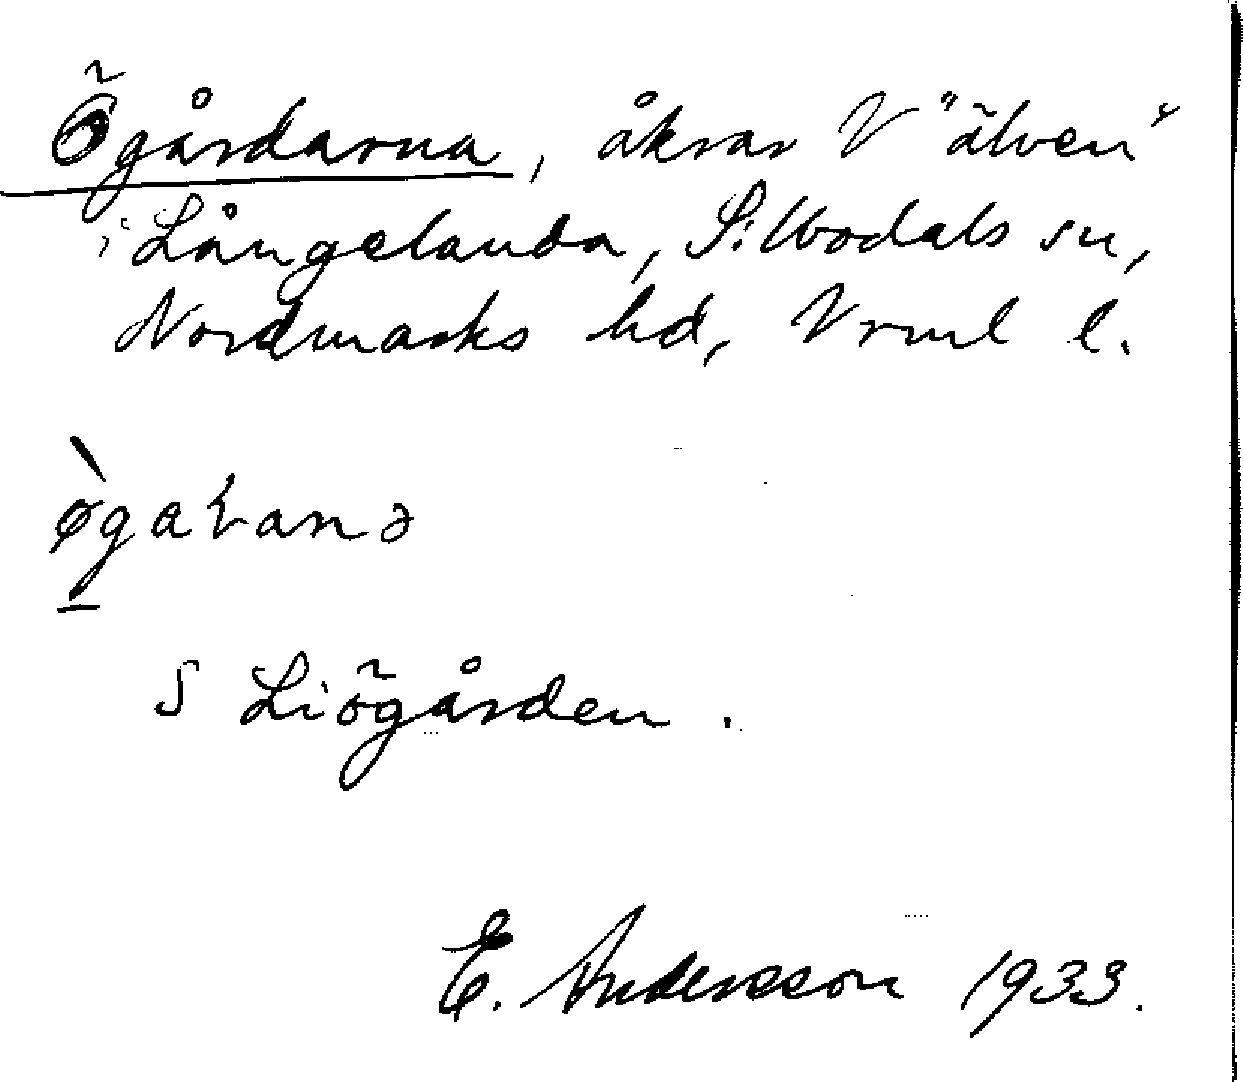 Ögårdarna, åkrar V "älven"
i Långelanda, Silbodals sn,
Nordmarks hd, Vrml l.
ø̀gaƚanə
S Liögården.
E. Andersson 1933.